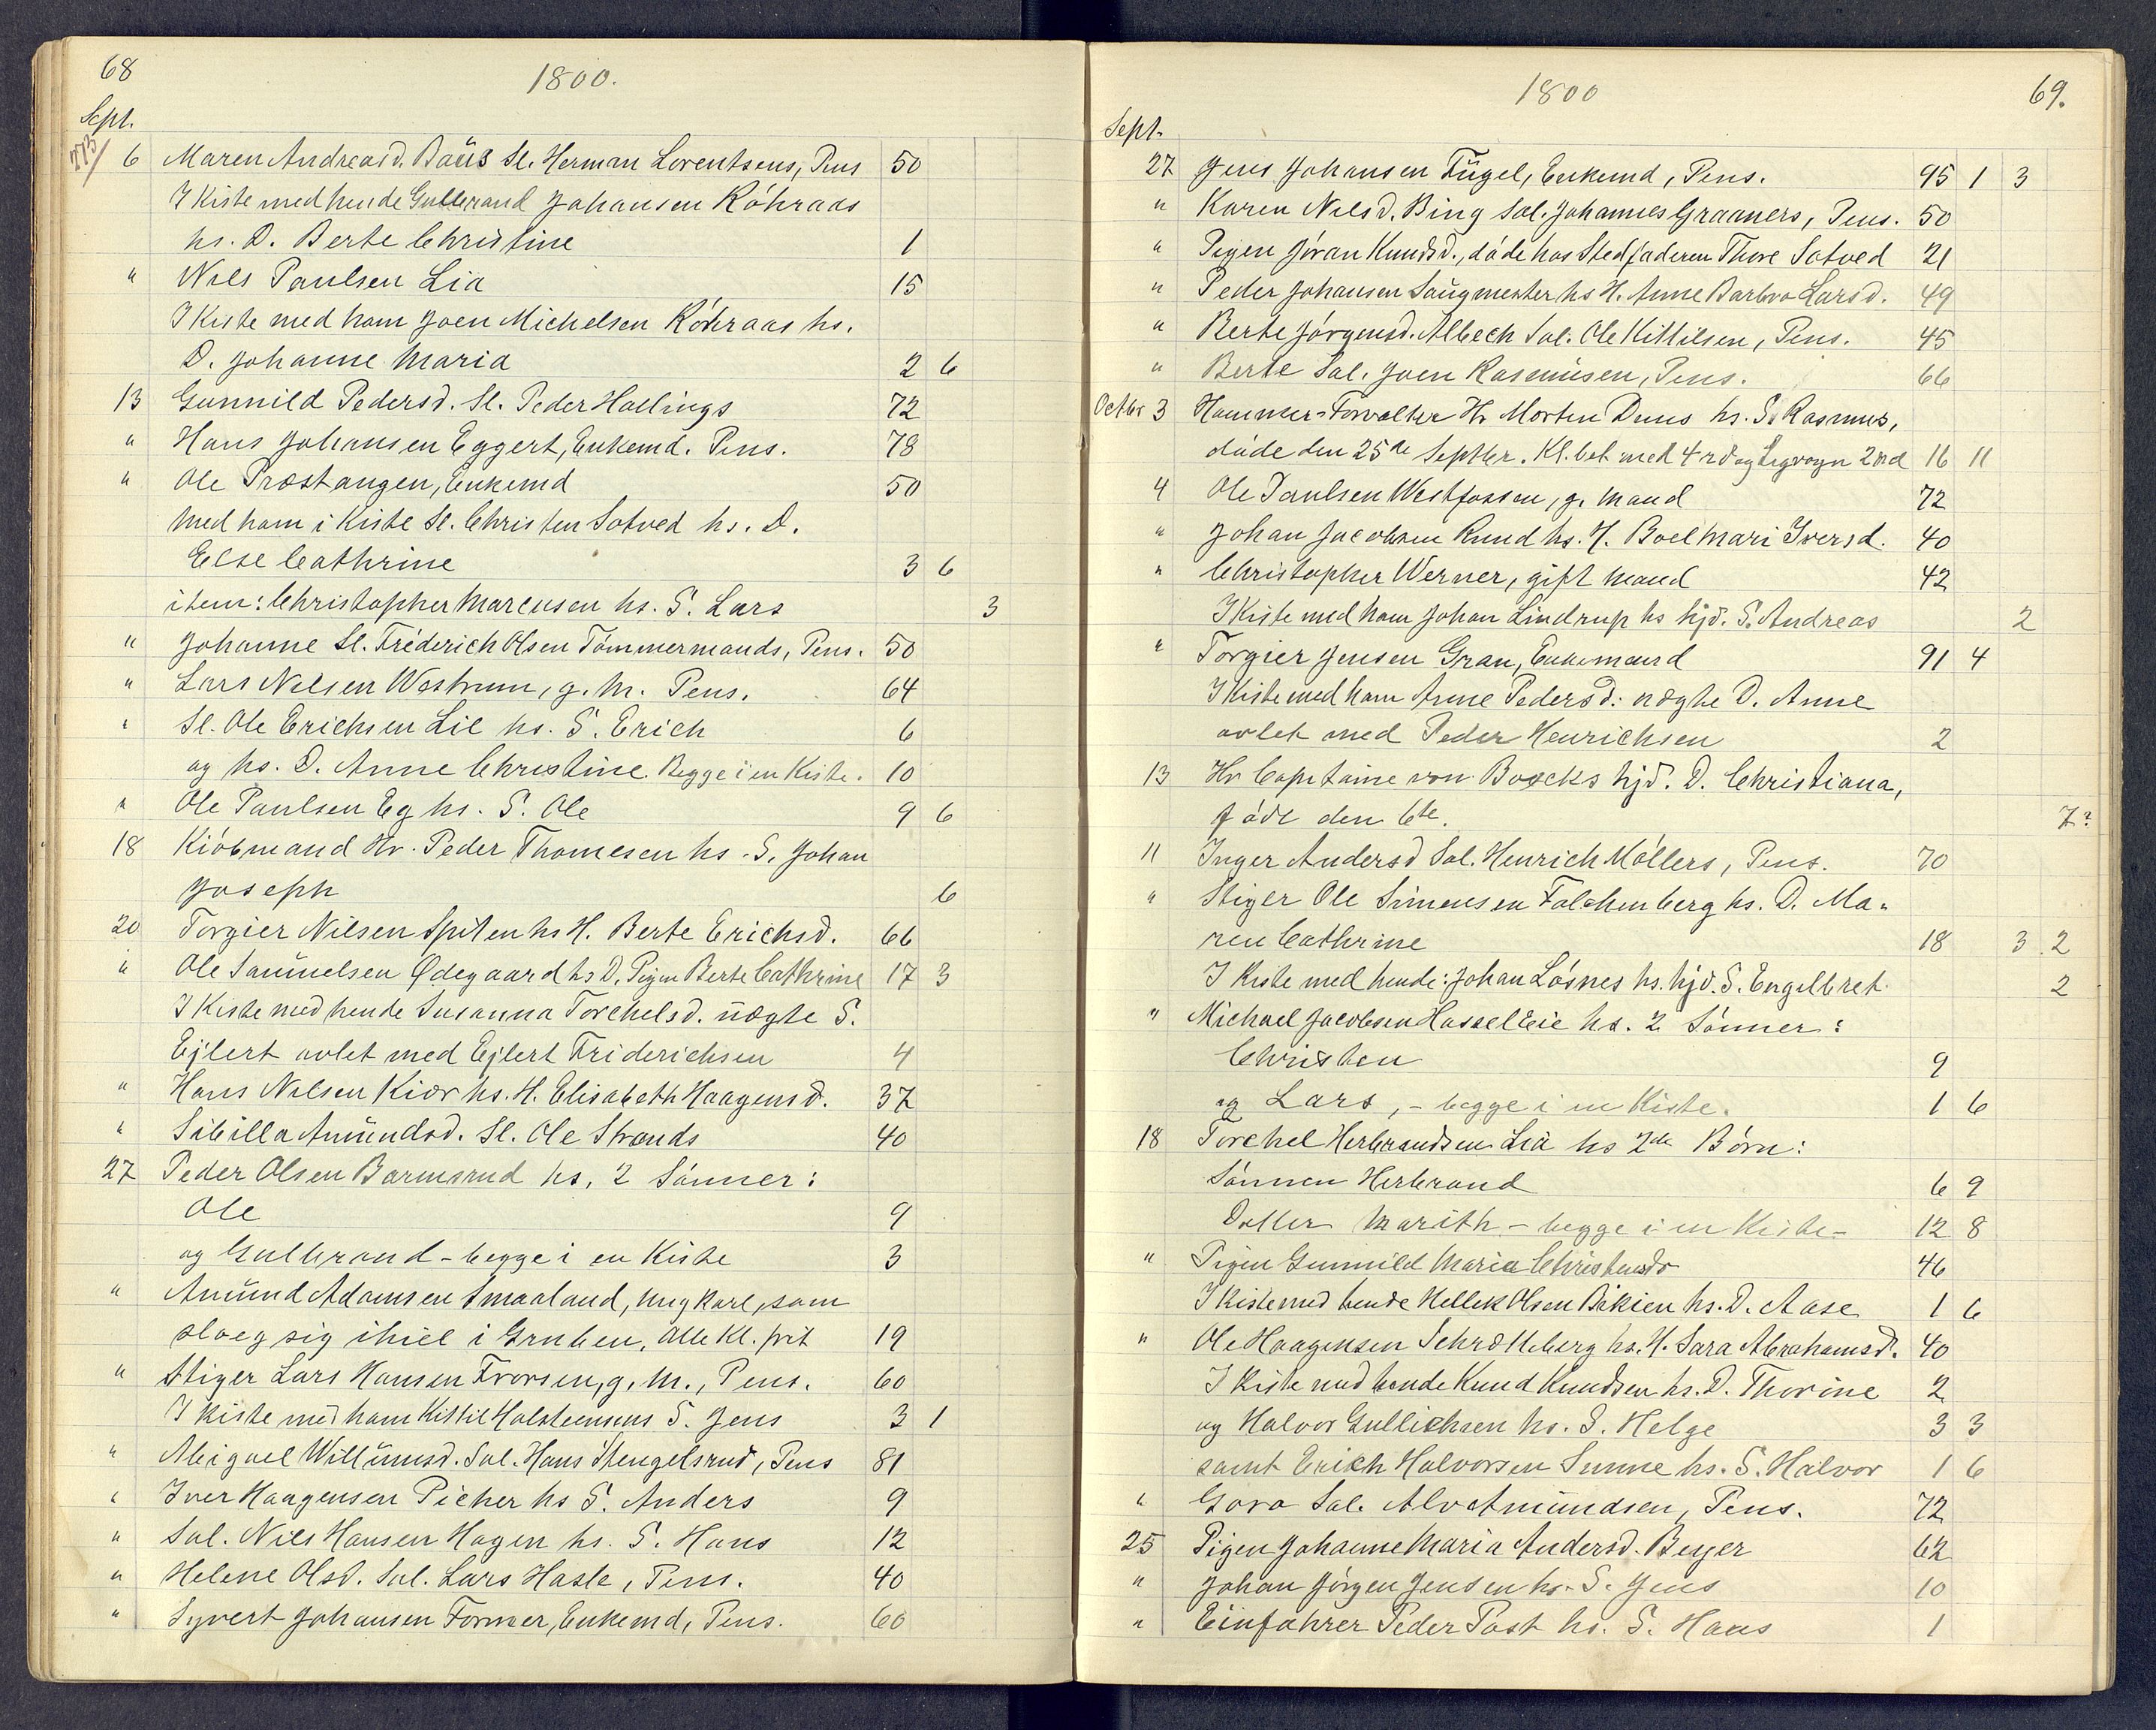 68
1800.
Sept.
273/
6 Maren Andreasd. Baüs Sl. Herman Lorentsens, Pens 50
I Kiste med hende Gulbrand Johansen Röhraas
hs. D. Berte Christine 1
" Niels Paulsen Lia 15
I Kiste med ham Joen Michelsen Röhraas hs.
D. Johanne Maria 2 6
13 Gunnild Pedersd. Sl. Peder Hallings 72
" Hans Johansen Eggert, Enkemd. Pens. 78
" Ole Præstangen, Enkemd 50
Med ham i Kiste Sl. Christen Sotved hs. D.
Else Cathrine 3 6
item: Christopher Marcusen hs. S. Lars 3
" Johanne Sl. Fréderich Olsen Tömmermands, Pens. 50
" Lars Nilsen Westrum, g. M. Pens. 64
" Sl. Ole Erichsen Lie hs. S. Erich 6
og hs. D. Anne Christine. Begge i en Kiste. 10
" Ole Paulsen Eg hs. S. Ole 9 6
18 Kiöbmand Hr. Peder Thomesen hs. S. Johan
Joseph 6
20 Torgier Nilsen Spiten hs H. Berte Erichsd. 66
" Ole Samuelsen Ødegaard hs D. Pigen Berte Cathrine 17 3
I Kiste med hende Susanna Torchelsd. uægte S.
Ejlert avlet med Ejlert Friderichsen 4
" Hans Nilsen Kiær hs. H. Elisabeth Haagensd. 37
" Sibilla Amündsd. Sl. Ole Strands 40
27 Peder Olsen Barmsrud hs. 2 Sönner:
Ole 9
og Gulbrand - begge i en Kiste 3
" Amünd Adamsen Smaaland, Ungkarl, som
sloeg sig ihiel i Gruben. Alle Kl. frit 19
" Stiger Lars Hansen Frorsen, g. M., Pens. 60
I Kiste med ham Kittil Halsteensens S. Jens 3 1
" Abigael Willumsd. Sal. Hans Stengelsrud, Pens 81
" Iver Haagensen Picher hs S. Anders 9
" Sal. Niels Hansen Hagen hs. S. Hans 12
" Helene Olsd. Sal. Lars Hasle, Pens. 40
" Syvert Johansen Former, Enkemd, Pens. 60
1800
69.
Sept.
27 Jens Johansen Fügel, Enkemd, Pens. 95 1 3
" Karen Nilsd. Bing Sal. Johannes Graaners, Pens. 50
" Pigen Jöran Knudsd., döde hos Stedfaderen Thore Sotved 21
" Peder Johansen Saugmester hs H. Anne Barbra Larsd. 49
" Berte Jörgensd. Albech Sal. Ole Kittilsen, Pens. 45
" Berte Sal. Joen Rasmusen, Pens. 66
Octbr 3 Hammer-Forvalter Hr Morten Duus hs. S. Rasmus,
döde den 25de Septbr. Kl. bet. med 4 rd og Ligvogn 2 rd 16 11
4 Ole Paulsen Westfossen, g. Mand 72
" Johan Jacobsen Rund hs. H. Boel Mari Iversd. 40
" Christopher Werner, gift Mand 42
I Kiste med ham Johan Lindrup hs hjd. S. Andreas 2
" Torgier Jensen Gran, Enkemand 91 4
I Kiste med ham Anne Pedersd: uægte D. Anne
avlet med Peder Henrichsen 2
13 Hr Capitaine von Boecks hjd. D. Christiana,
födt den 6te. 7?
11 Inger Andersd Sal. Henrich Möllers, Pens. 70
" Stiger Ole Simensen Falchenberg hs. D. Ma-
ren Cathrine 18 3 2
I Kiste med hende: Johan Lösnes hs. hjd. S. Engelbret 2
" Michael Jacobsen Hassel Eie hs. 2 Sönner:
Christen 9
og Lars, - begge i en Kiste. 1 6
18 Torchel Herbrandsen Lia hs 2de Börn:
Sönnen Herbrand 6 9
Datter Marith - begge i en Kiste - 12 8
" Pigen Gunnild Maria Christensdr 46
I Kiste med hende Hellek Olsen Bakien hs. D. Aase 1 6
" Ole Haagensen Schrætteberg hs. H. Sara Abrahamsd. 40
I Kiste med hende Knud Knudsen hs. D. Thorine 2
og Halvor Gullichsen hs. S. Helge 3 3
samt Erich Halvorsen Sunne hs. S. Halvor 1 6
" Goro Sal. Alv Amündsen, Pens. 72
25 Pigen Johanne Maria Andersd. Beyer 62
" Johan Jörgen Jensen hs. S. Jens 10
" Einfahrer Peder Post hs. S. Hans 1